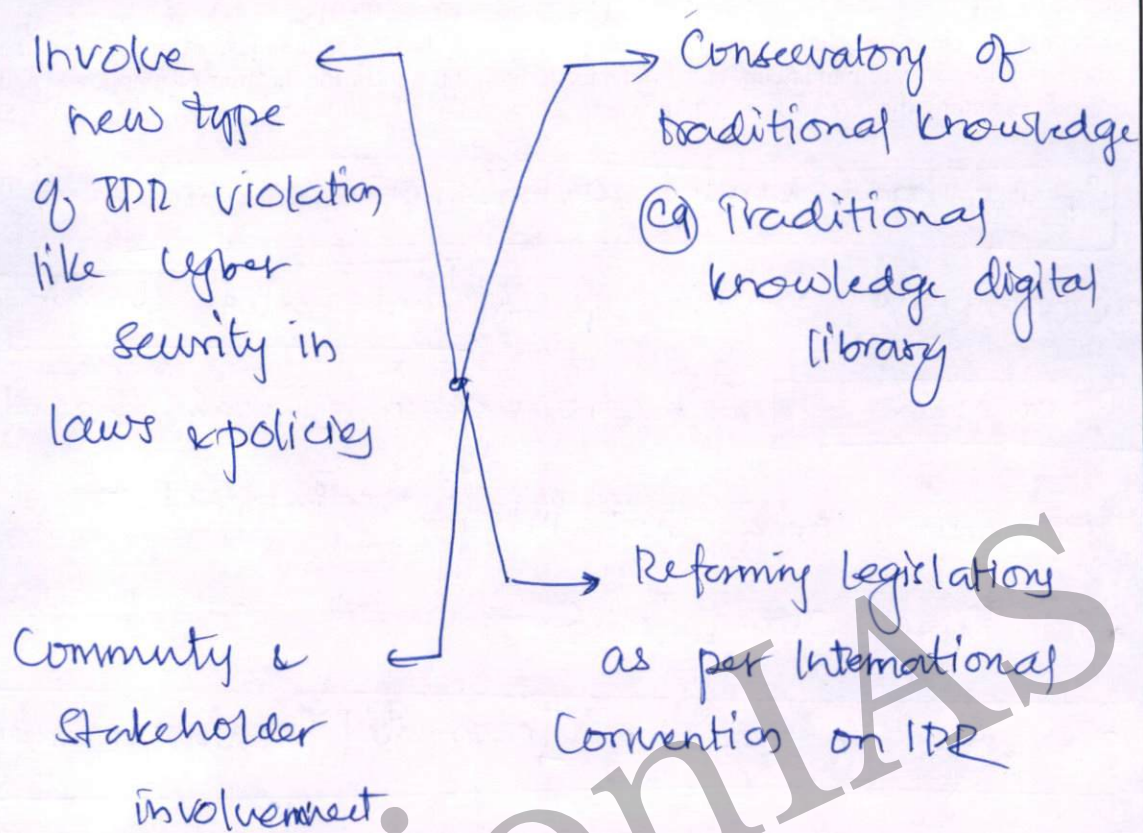 Involve
new type
of IPR violation
like cyber
security in
laws & policies
Conservatory of
traditional knowledge
eg Traditional
knowledge digital
library
Community &
Stakeholder
involvement
Reforming legislations
as per International
Convention on IPR
onIAS